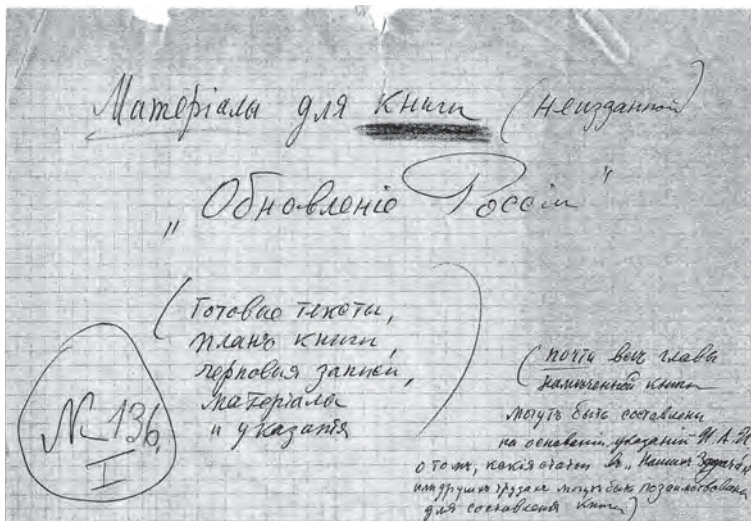 Матерiалы для книги (неизданной)
„Обновленiе Россiи"
(Готовые тексты,
планъ книги,
черновыя записи,
матерiалы
и указанiя
№ 136,
I
(почти все главы
намѣченной книги
могутъ быть составлены
на основанiи указанiй И. А. И
о томъ, какiя статьи въ „Нашихъ Задачахъ"
или другихъ трудахъ могутъ быть позаимствованы
для составленiя книги)